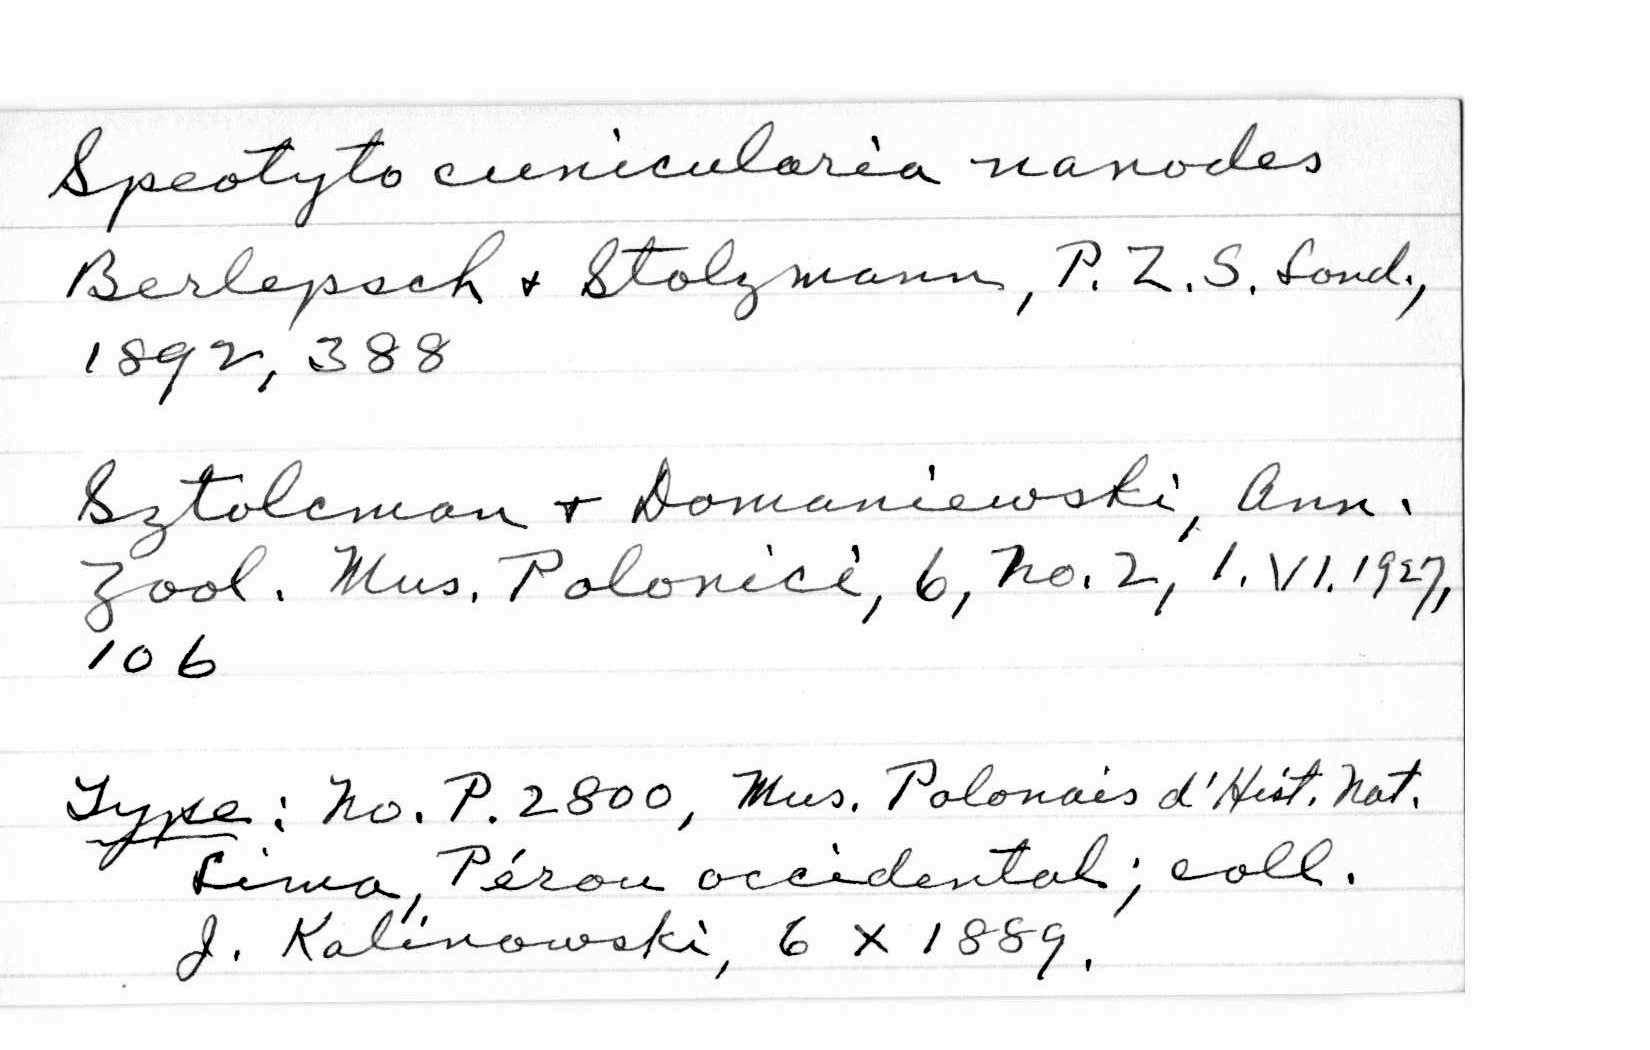 Speotyto cunicularia nanodes
Berlepsch + Stolzmann, P. Z. S. Lond.,
1892, 388
Sztolcman + Domaniewski, Ann.
Zool. Mus. Polonici, 6, No. 2, 1. VI. 1927,
106
Type: No. P. 2800, Mus. Polonais d'Hist. Nat.
Lima, Pérou occidental; coll.
J. Kalinowski, 6 X 1889.